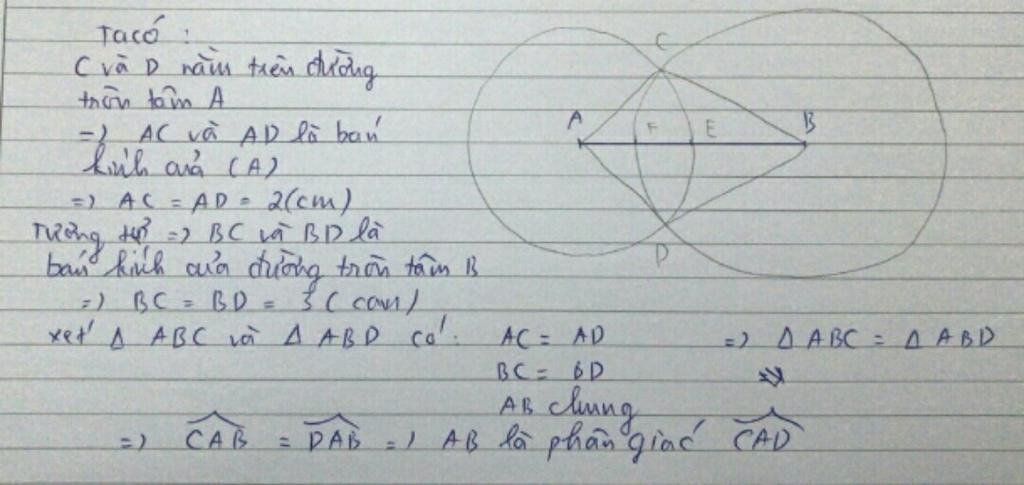 Ta có :
C và D nằm trên đường
tròn tâm A
=> AC và AD là bán
kính của (A)
=> AC = AD = 2(cm)
Tương tự => BC và BD là
bán kính của đường tròn tâm B
=> BC = BD = 3 (cm)
xét Δ ABC và Δ ABD có: AC = AD => Δ ABC = Δ ABD
BC = BD
AB chung
=> CAB = DAB => AB là phân giác CAD
C
A F E B
D